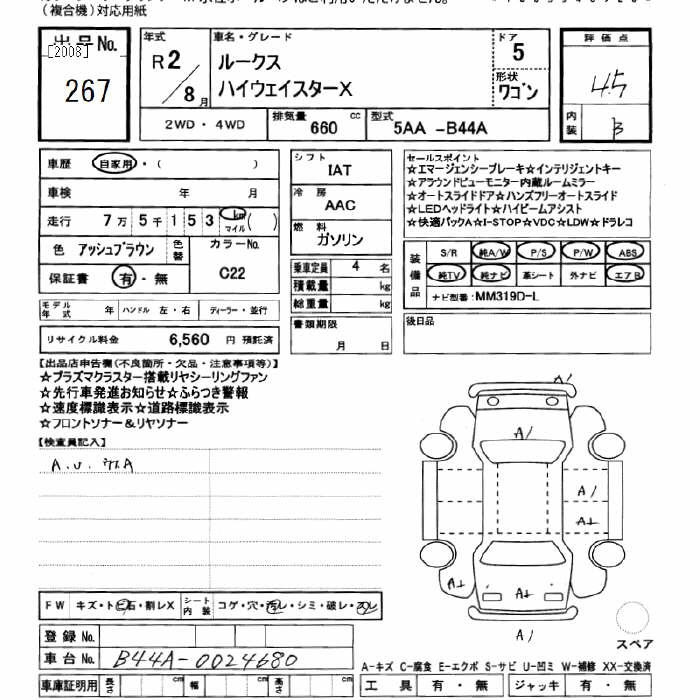 （複合機）対応用紙
出品No.
[2008]
267
年式
R2/8月
車名・グレード
ルークス
ハイウェイスターX
ドア
5
形状
ワゴン
評価点
4.5
内装
B
2WD・4WD
排気量
660
cc
型式
5AA -B44A
車歴 自家用・( )
車検 年 月
走行 7万5千153 km マイル ( )
色 アッシュブラウン
色替
カラーNo.
C22
保証書 有・無
シフト
IAT
冷房
AAC
燃料
ガソリン
乗車定員 4 名
積載量 kg
総重量 kg
セールスポイント
☆エマージェンシーブレーキ☆インテリジェントキー
☆アラウンドビューモニター内蔵ルームミラー
☆オートスライドドア☆ハンズフリーオートスライド
☆LEDヘッドライト☆ハイビームアシスト
☆快適パックA☆I-STOP☆VDC☆LDW☆ドラレコ
装備品
S/R 純A/W P/S P/W ABS
純TV 純ナビ 革シート 外ナビ エアB
ナビ型番: MM319D-L
モデル年式 年
ハンドル 左・右
ディーラー・並行
リサイクル料金 6,560 円 預託済
書類期限
月 日
後日品
【出品店申告欄(不良箇所・欠品・注意事項等)】
☆プラズマクラスター搭載リヤシーリングファン
☆先行車発進お知らせ☆ふらつき警報
☆速度標識表示☆道路標識表示
☆フロントソナー＆リヤソナー
【検査員記入】
A.U.
A1
A1
A1
A1
FW キズ・トビ石・割レX
シート内装
コゲ・穴・汚レ・シミ・破レ・スレ
登録No.
車台No. B44A-0024680
スペア
A-キズ C-腐食 E-エクボ S-サビ U-凹ミ W-補修 XX-交換済
車庫証明用 長さ cm 幅 cm 高さ cm
工具 有・無 ジャッキ 有・無